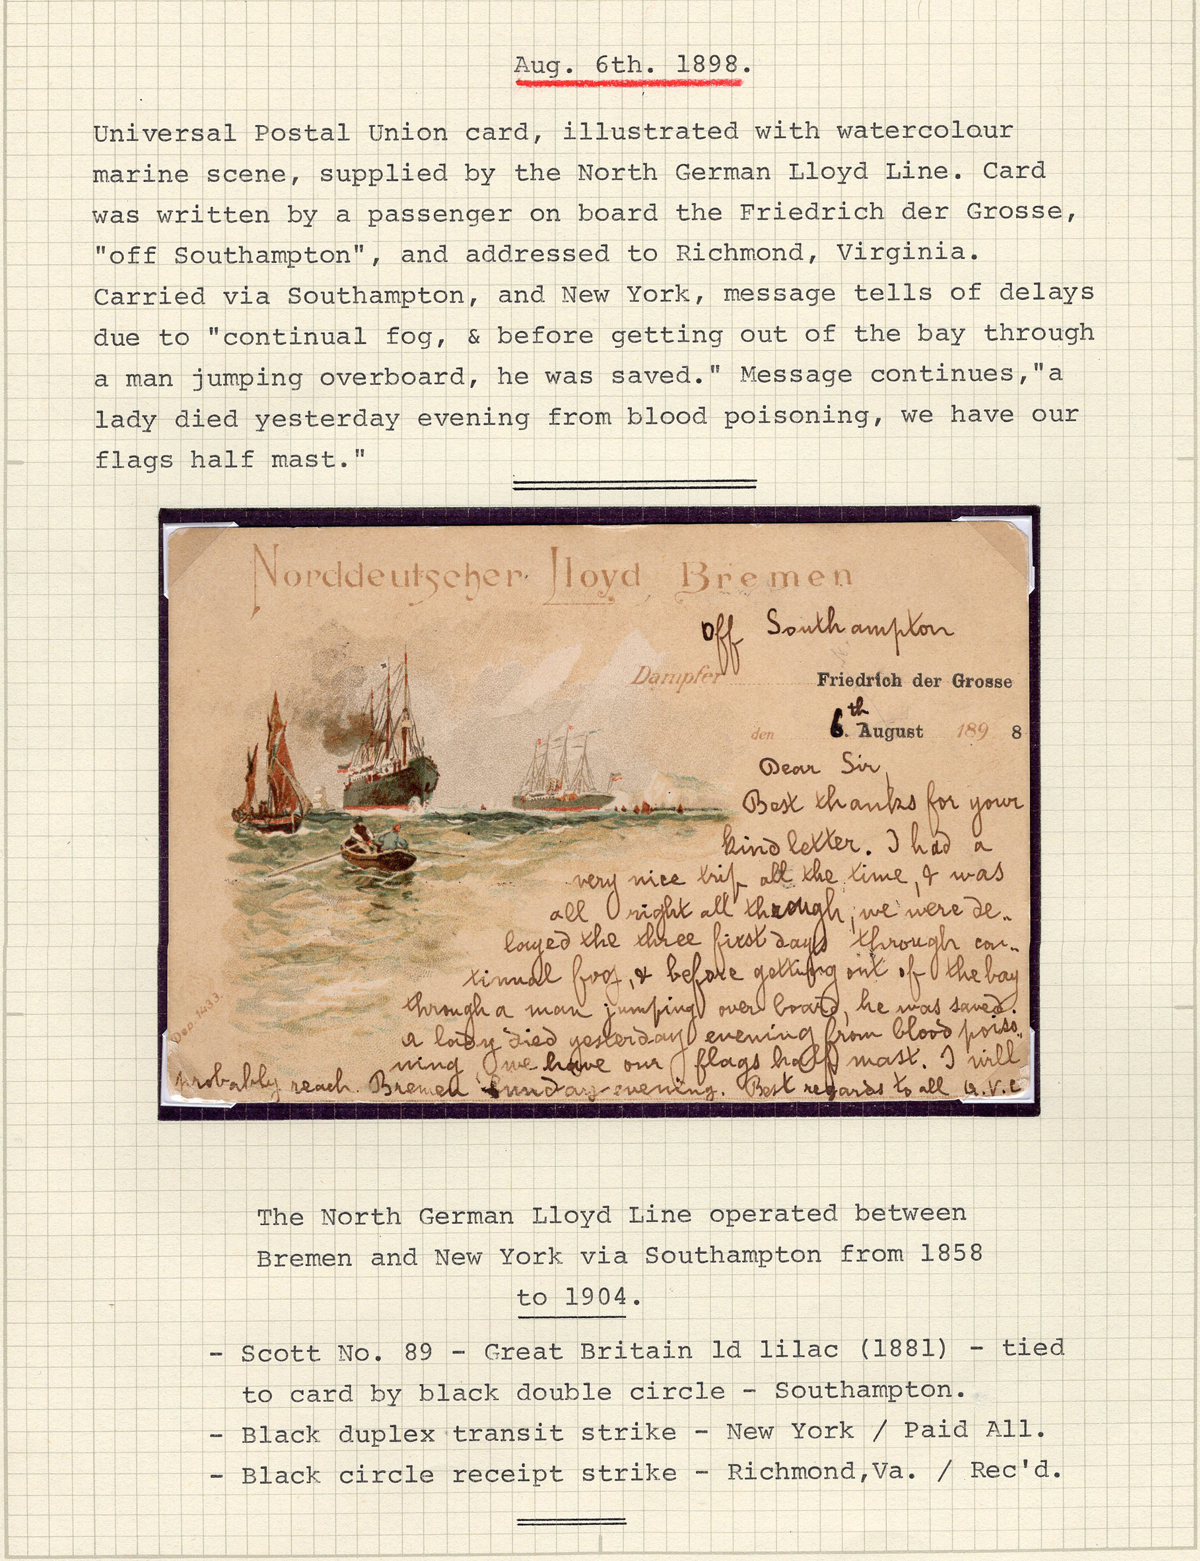 Aug. 6th. 1898.
Universal Postal Union card, illustrated with watercolour
marine scene, supplied by the North German Lloyd Line. Card
was written by a passenger on board the Friedrich der Grosse,
"off Southampton", and addressed to Richmond, Virginia.
Carried via Southampton, and New York, message tells of delays
due to "continual fog, & before getting out of the bay through
a man jumping overboard, he was saved." Message continues,"a
lady died yesterday evening from blood poisoning, we have our
flags half mast."
Norddeutscher Lloyd Bremen
off Southampton
Dampfer Friedrich der Grosse
den 6.th August 189 8
Dear Sir,
Best thanks for your
kind letter. I had a
very nice trip all the time, & was
all right all through, we were de-
layed the three first days through con-
tinual fog, & before getting out of the bay
through a man jumping over board, he was saved.
a lady died yesterday evening from blood poiso-
ning we have our flags half mast. I will
probably reach Bremen Sunday evening. Best regards to all
Dep. 1493.
The North German Lloyd Line operated between
Bremen and New York via Southampton from 1858
to 1904.
- Scott No. 89 - Great Britain 1d lilac (1881) - tied
to card by black double circle - Southampton.
- Black duplex transit strike - New York / Paid All.
- Black circle receipt strike - Richmond,Va. / Rec'd.